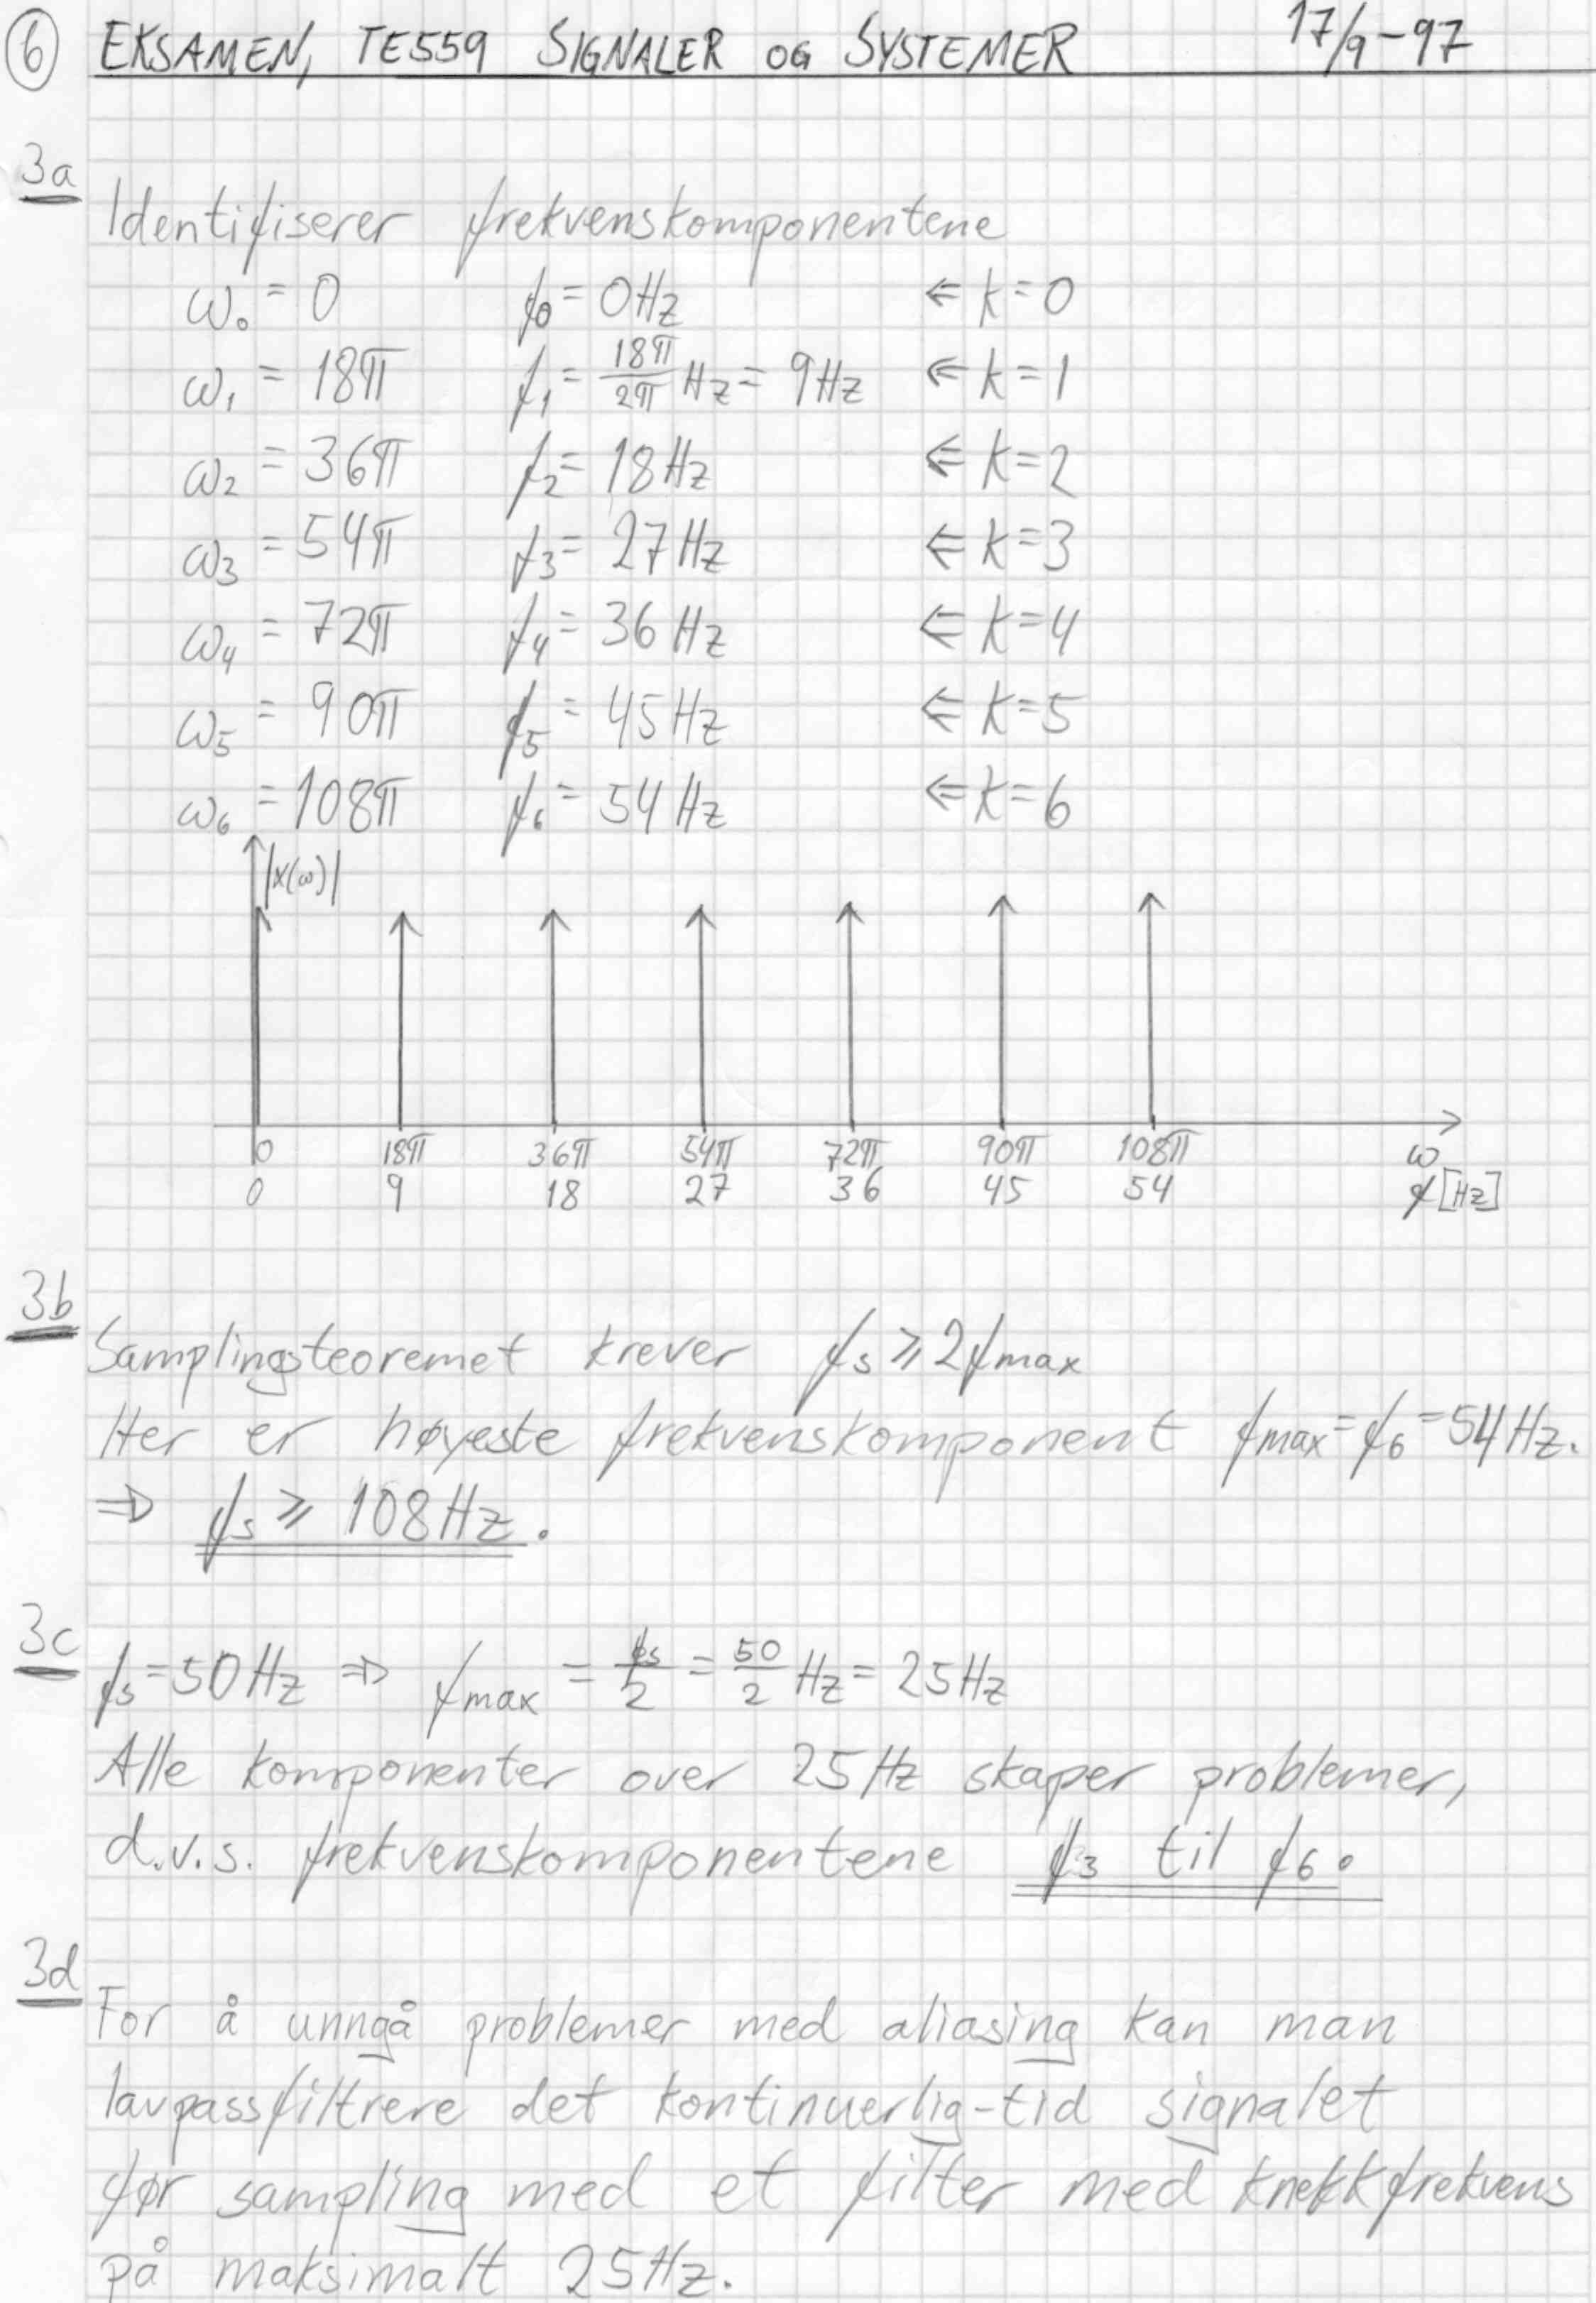 6 EKSAMEN, TE559 SIGNALER OG SYSTEMER 17/9-97
3a
Identifiserer frekvenskomponentene
ω₀ = 0 f₀ = 0Hz ⇐ k=0
ω₁ = 18π f₁ = 18π/2π Hz = 9Hz ⇐ k=1
ω₂ = 36π f₂ = 18Hz ⇐ k=2
ω₃ = 54π f₃ = 27Hz ⇐ k=3
ω₄ = 72π f₄ = 36Hz ⇐ k=4
ω₅ = 90π f₅ = 45Hz ⇐ k=5
ω₆ = 108π f₆ = 54Hz ⇐ k=6
|X(ω)|
0 18π 36π 54π 72π 90π 108π ω
0 9 18 27 36 45 54 f[Hz]
3b
Samplingsteoremet krever fs ≥ 2fmax
Her er høyeste frekvenskomponent fmax = f₆ = 54Hz.
⇒ fs ≥ 108Hz.
3c
fs = 50Hz ⇒ fmax = fs/2 = 50/2 Hz = 25Hz
Alle komponenter over 25Hz skaper problemer,
d.v.s. frekvenskomponentene f₃ til f₆.
3d
For å unngå problemer med aliasing kan man
lavpassfiltrere det kontinuerlig-tid signalet
før sampling med et filter med knekkfrekvens
på maksimalt 25Hz.